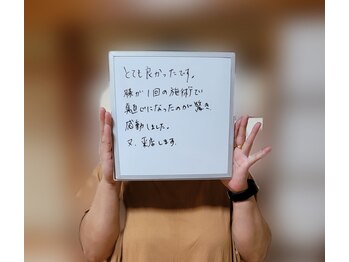 とても良かったです。
腰が1回の施術で
楽になったのが驚き
感動しました。
又、来店します